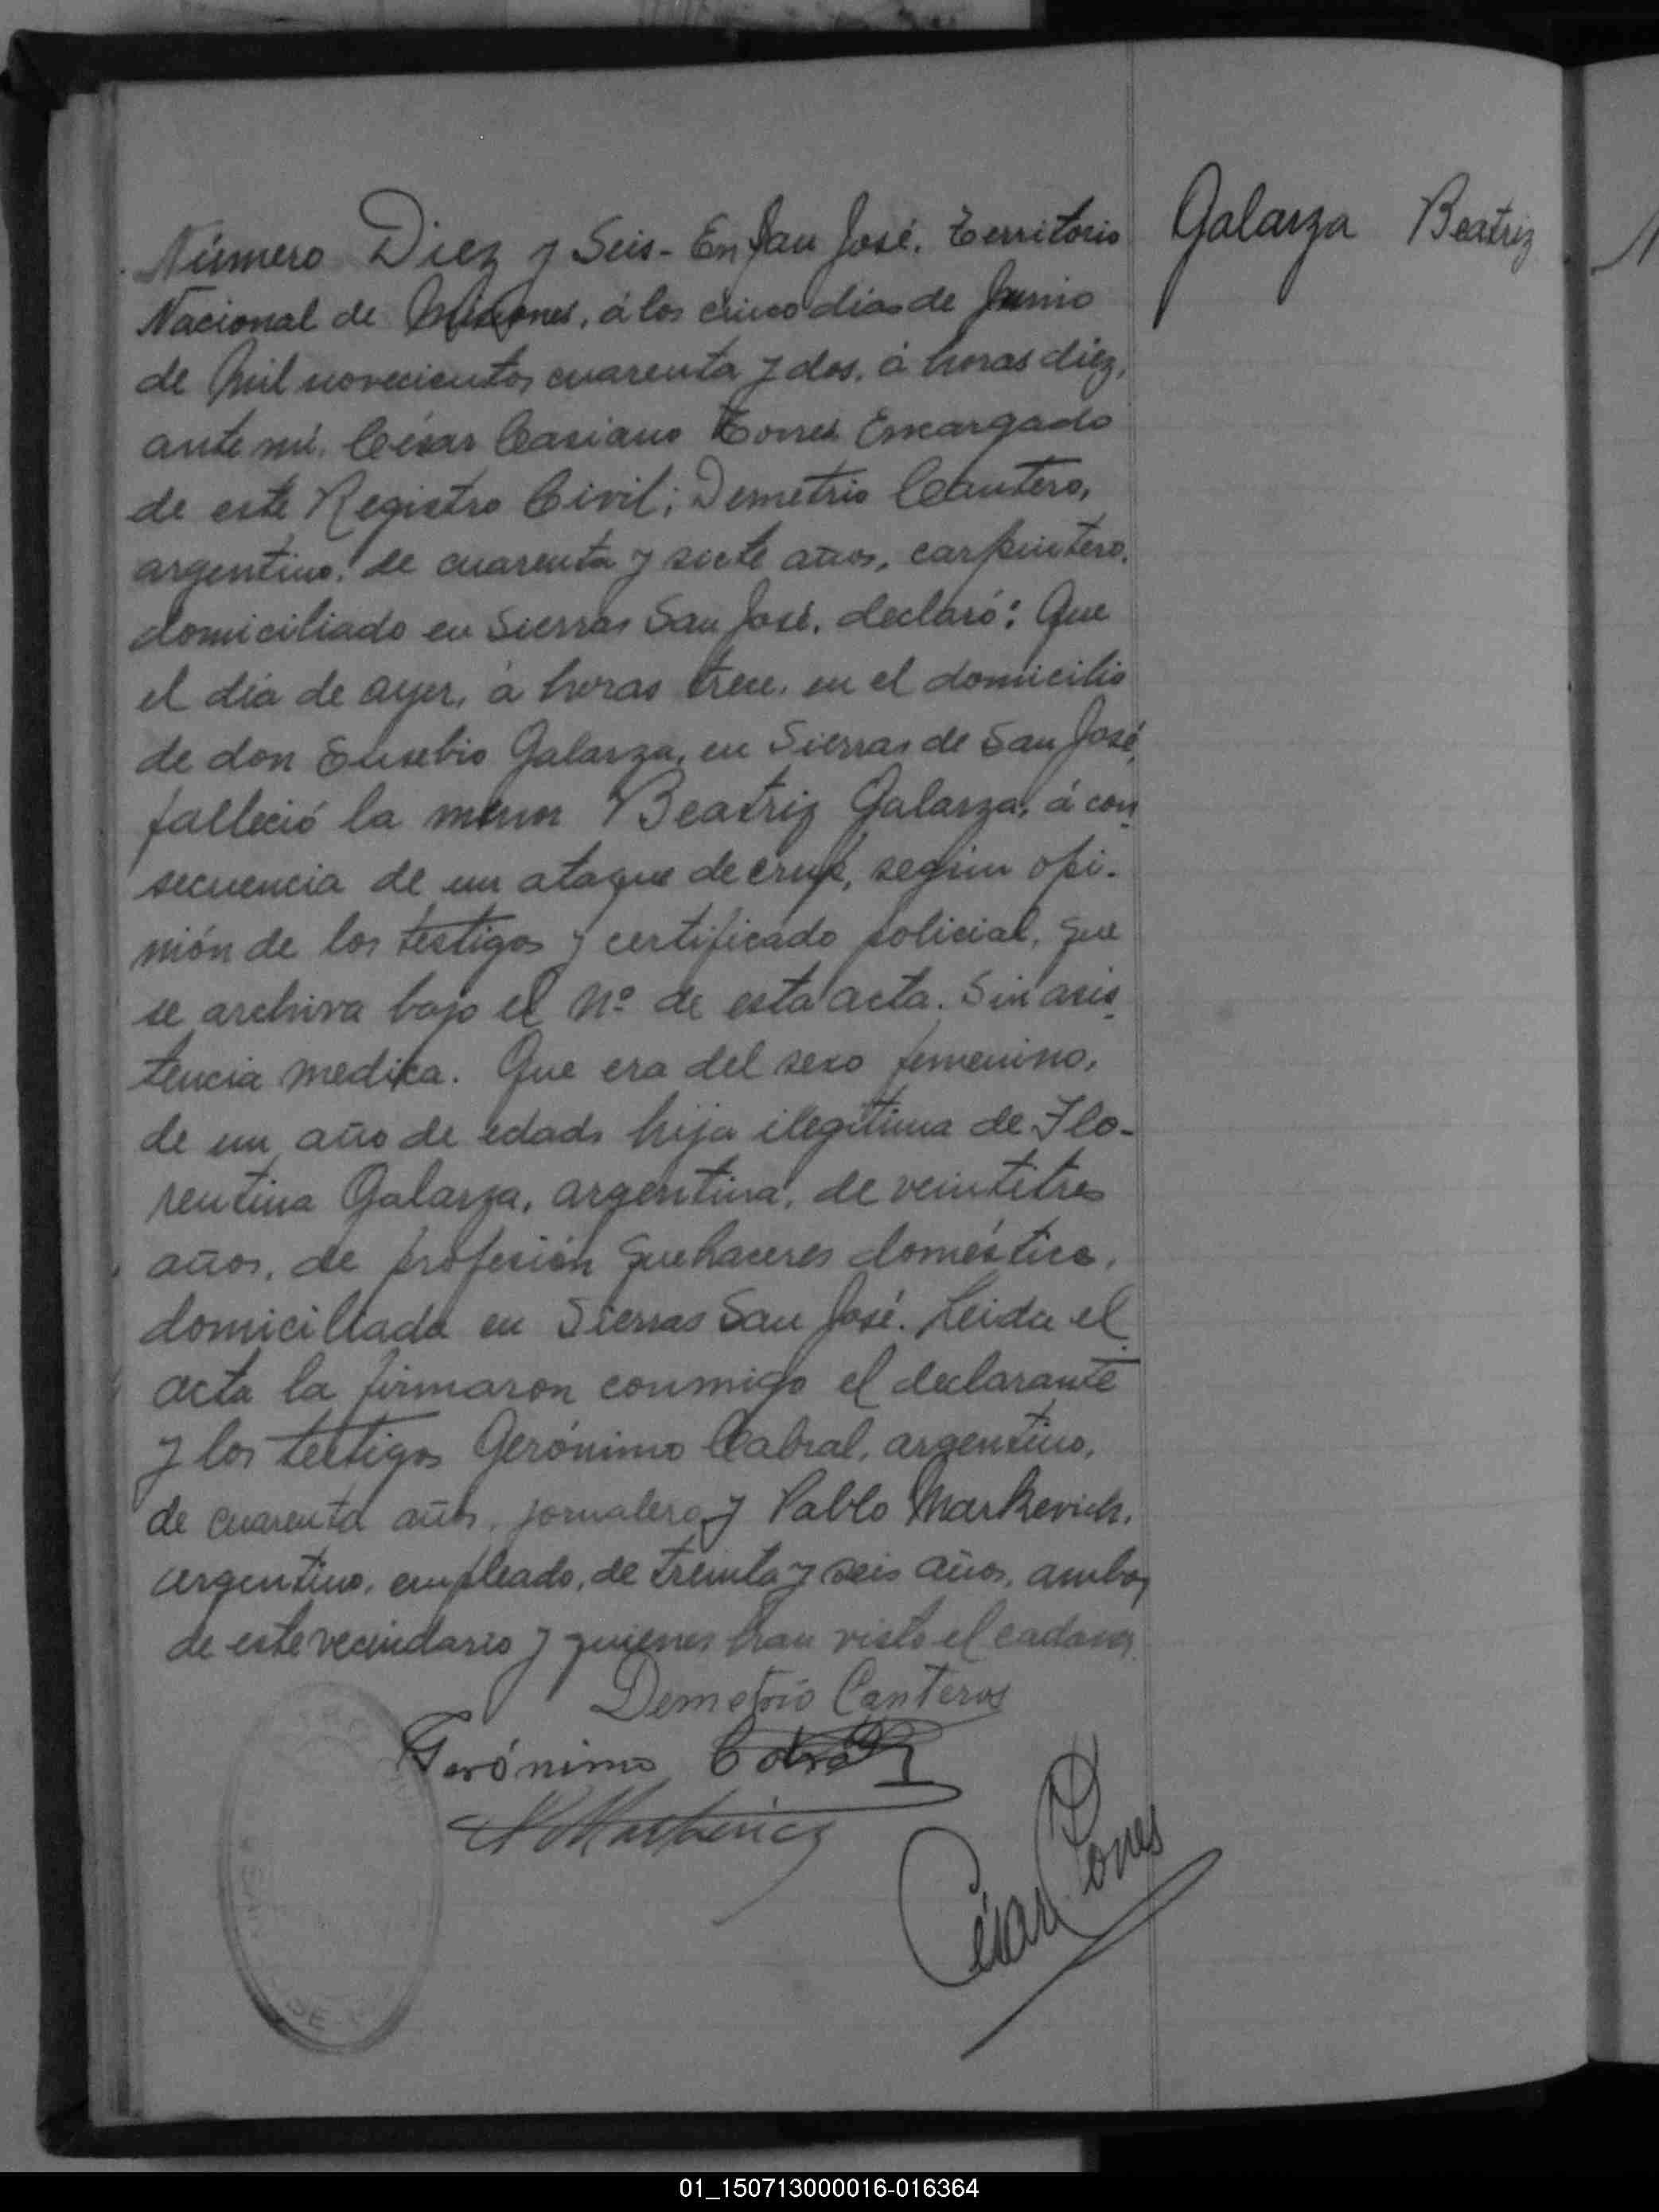 Galarza Beatriz
Número Diez y Seis - En San José, Territorio
Nacional de Misiones, á los cinco dias de Junio
de Mil novecientos cuarenta y dos, á horas diez,
ante mí, César Casiano Torres Encargado
de este Registro Civil; Demetrio Cantero,
argentino, de cuarenta y siete años, carpintero,
domiciliado en Sierras San José, declaró: Que
el día de ayer, á horas trece, en el domicilio
de don Eusebio Galarza, en Sierras de San José,
falleció la menor Beatriz Galarza, á con
secuencia de un ataque de crup, según opi-
nión de los testigos y certificado policial, que
se archiva bajo el Nº de esta acta. Sin asis
tencia medica. Que era del sexo femenino,
de un año de edad, hija ilegitima de Flo-
rentina Galarza, argentina, de veintitres
años, de profesión quehaceres doméstico,
domiciliada en Sierras San José. Leida el
acta la firmaron conmigo el declarante
y los testigos Gerónimo Cabral, argentino,
de cuarenta años, jornalero y Pablo Markevich,
argentino, empleado, de treinta y seis años, ambos
de este vecindario y quienes han visto el cadaver.
Demetrio Canteros
Gerónimo Cabral
César Torres
DE
01_150713000016-016364